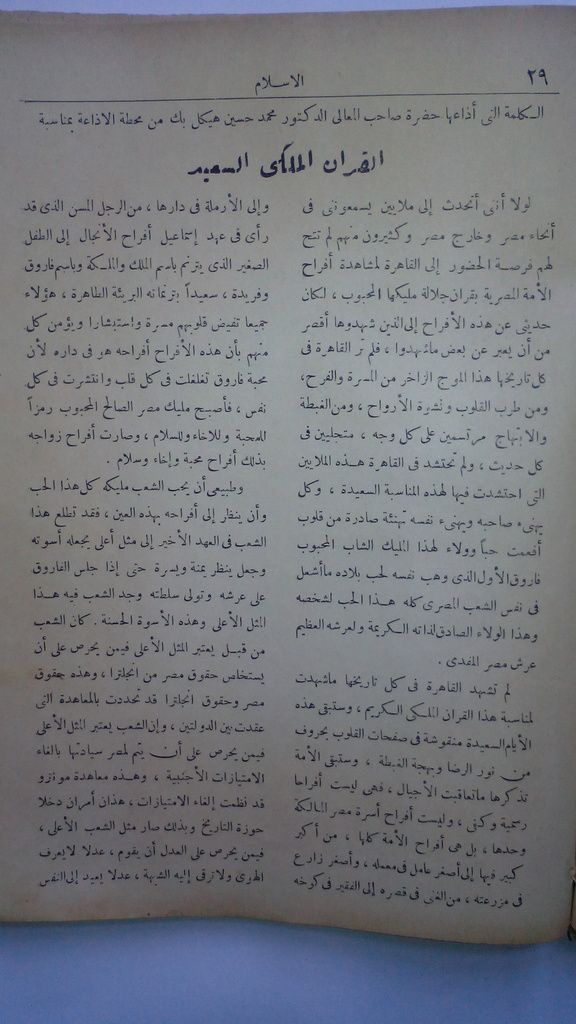 ٢٩
الاسلام
الكلمة التى أذاعها حضرة صاحب المعالى الدكتور محمد حسين هيكل بك من محطة الاذاعة بمناسبة
القران الملكى السعيد
لولا أننى أتحدث إلى ملايين يسمعوننى فى
أنحاء مصر وخارج مصر وكثيرون منهم لم تتح
لهم فرصة الحضور إلى القاهرة لمشاهدة أفراح
الأمة المصرية بقران جلالة مليكها المحبوب ، لكان
حديثى عن هذه الأفراح إلى الذين شهدوها أقصر
من أن يعبر عن بعض ماشهدوا ، فلم تر القاهرة فى
كل تاريخها هذا الموج الزاخر من المسرة والفرح،
ومن طرب القلوب ونشوة الأرواح ، ومن الغبطة
والابتهاج مرتسمين على كل وجه ، متجليين فى
كل حديث ، ولم تحتشد فى القاهرة هذه الملايين
التى احتشدت فيها لهذه المناسبة السعيدة ، وكل
يهنىء صاحبه ويهنىء نفسه تهنئة صادرة من قلوب
أفعمت حباً وولاء لهذا المليك الشاب المحبوب
فاروق الأول الذى وهب نفسه لحب بلاده ماأشعل
فى نفس الشعب المصرى كله هذا الحب لشخصه
وهذا الولاء الصادق لذاته الكريمة ولعرشه العظيم
عرش مصر المفدى .
لم تشهد القاهرة فى كل تاريخها ماشهدت
لمناسبة هذا القران الملكى الكريم ، وستبقى هذه
الأيام السعيدة منقوشة فى صفحات القلوب بحروف
من نور الرضا وبهجة الغبطة ، وستبقى الأمة
تذكرها ماتعاقبت الأجيال ، فهى ليست أفراحا
رسمية وكفى ، وليست أفراح أسرة مصر المالكة
وحدها ، بل هى أفراح الأمة كلها ، من أكبر
كبير فيها إلى أصغر عامل فى معمله ، وأصغر زارع
فى مزرعته ، من الغنى فى قصره إلى الفقير فى كوخه
وإلى الأرملة فى دارها ، من الرجل المسن الذى قد
رأى فى عهد إسماعيل أفراح الأنجال إلى الطفل
الصغير الذى يترنم باسم الملك والملكة وباسم فاروق
وفريدة ، سعيداً بترنماته البريئة الطاهرة ، هؤلاء
جميعا تفيض قلوبهم مسرة واستبشارا ويؤمن كل
منهم بأن هذه الأفراح أفراحه هو فى داره لأن
محبة فاروق تغلغلت فى كل قلب وانتشرت فى كل
نفس ، فأصبح مليك مصر الصالح المحبوب رمزاً
للمحبة وللاخاء وللسلام ، وصارت أفراح زواجه
بذلك أفراح محبة وإخاء وسلام .
وطبيعى أن يحب الشعب مليكه كل هذا الحب
وأن ينظر إلى أفراحه بهذه العين ، فقد تطلع هذا
الشعب فى العهد الأخير إلى مثل أعلى يجعله أسوته
وجعل ينظر يمنة ويسرة حتى إذا جلس الفاروق
على عرشه وتولى سلطته وجد الشعب فيه هذا
المثل الأعلى وهذه الأسوة الحسنة . كان الشعب
من قبل يعتبر المثل الأعلى فيمن يحرص على أن
يستخلص حقوق مصر من انجلترا ، وهذه حقوق
مصر وحقوق انجلترا قد تحددت بالمعاهدة التى
عقدت بين الدولتين ، وإن الشعب يعتبر المثل الأعلى
فيمن يحرص على أن يتم لمصر سيادتها بالغاء
الامتيازات الأجنبية ، وهذه معاهدة مونترو
قد نظمت إلغاء الامتيازات ، هذان أمران دخلا
حوزة التاريخ وبذلك صار مثل الشعب الأعلى ،
فيمن يحرص على العدل أن يقوم ، عدلا لا يعرف
الهوى ولا ترقى إليه الشبهة ، عدلا يعيد إلى النفس